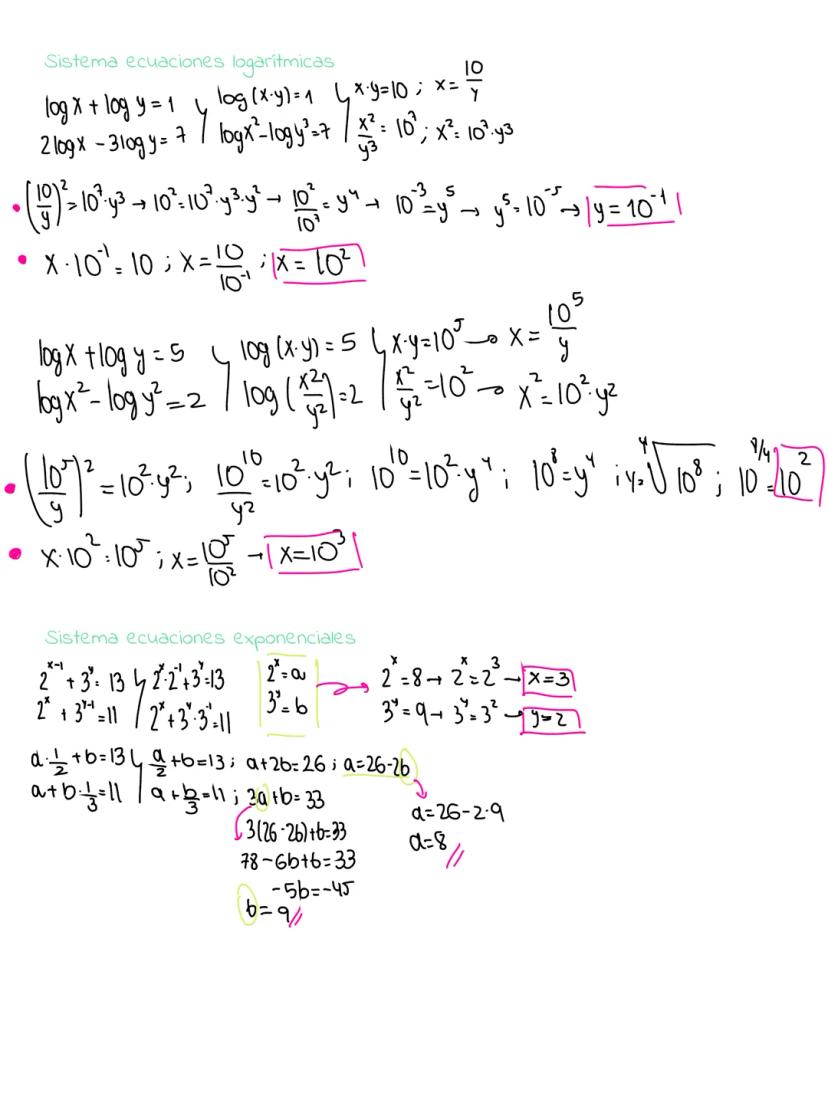 Sistema ecuaciones logarítmicas
log x + log y = 1 } log (x·y) = 1 } x·y = 10 ; x = 10/y
2 log x − 3 log y = 7 } log x² − log y³ = 7 } x²/y³ = 10⁷ ; x² = 10⁷·y³
• (10/y)² = 10⁷·y³ → 10² = 10⁷·y³·y² → 10²/10⁷ = y⁴ → 10⁻³ = y⁵ → y⁵ = 10⁻⁵ → y = 10⁻¹
• x·10⁻¹ = 10 ; x = 10/10⁻¹ ; x = 10²
log x + log y = 5 } log (x·y) = 5 } x·y = 10⁵ → x = 10⁵/y
log x² − log y² = 2 } log (x²/y²) = 2 } x²/y² = 10² → x² = 10²·y²
• (10⁵/y)² = 10²·y² ; 10¹⁰/y² = 10²·y² ; 10¹⁰ = 10²·y⁴ ; 10⁸ = y⁴ ; y = ⁴√10⁸ ; 10^(8/4) = 10²
• x·10² = 10⁵ ; x = 10⁵/10² → x = 10³
Sistema ecuaciones exponenciales
2ˣ⁻¹ + 3ʸ = 13 } 2ˣ·2⁻¹ + 3ʸ = 13 2ˣ = a → 2ˣ = 8 → 2ˣ = 2³ → x = 3
2ˣ + 3ʸ⁻¹ = 11 } 2ˣ + 3ʸ·3⁻¹ = 11 3ʸ = b 3ʸ = 9 → 3ʸ = 3² → y = 2
a·1/2 + b = 13 } a/2 + b = 13 ; a + 2b = 26 ; a = 26 − 2b
a + b·1/3 = 11 } a + b/3 = 11 ; 3a + b = 33
a = 26 − 2·9
3(26 − 2b) + b = 33
a = 8 //
78 − 6b + b = 33
−5b = −45
b = 9 //